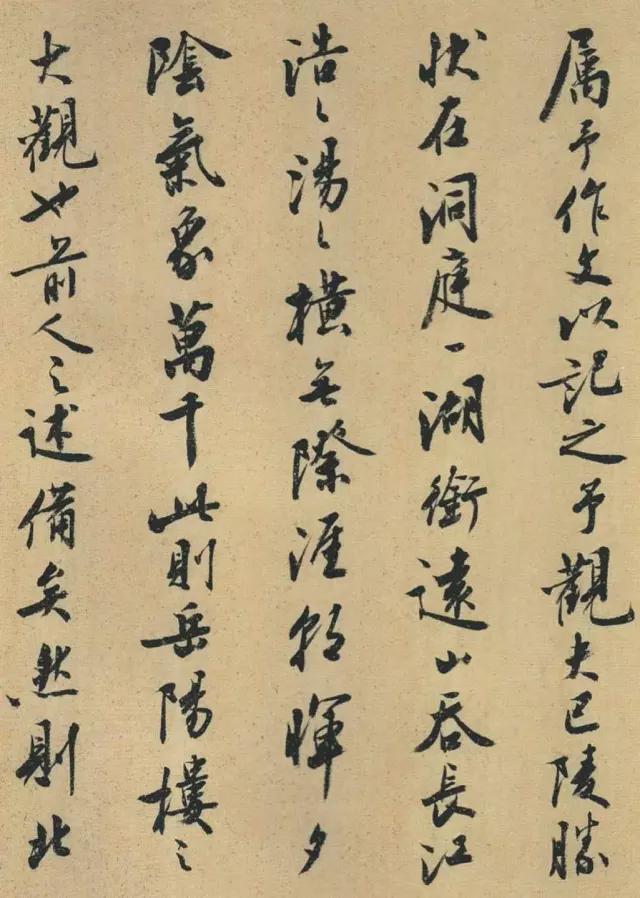 属予作文以記之予觀夫巴陵勝
狀在洞庭一湖銜遠山吞長江
浩〻湯〻橫無際涯朝暉夕
陰氣象萬千此則岳陽樓之
大觀也前人之述備矣然則北